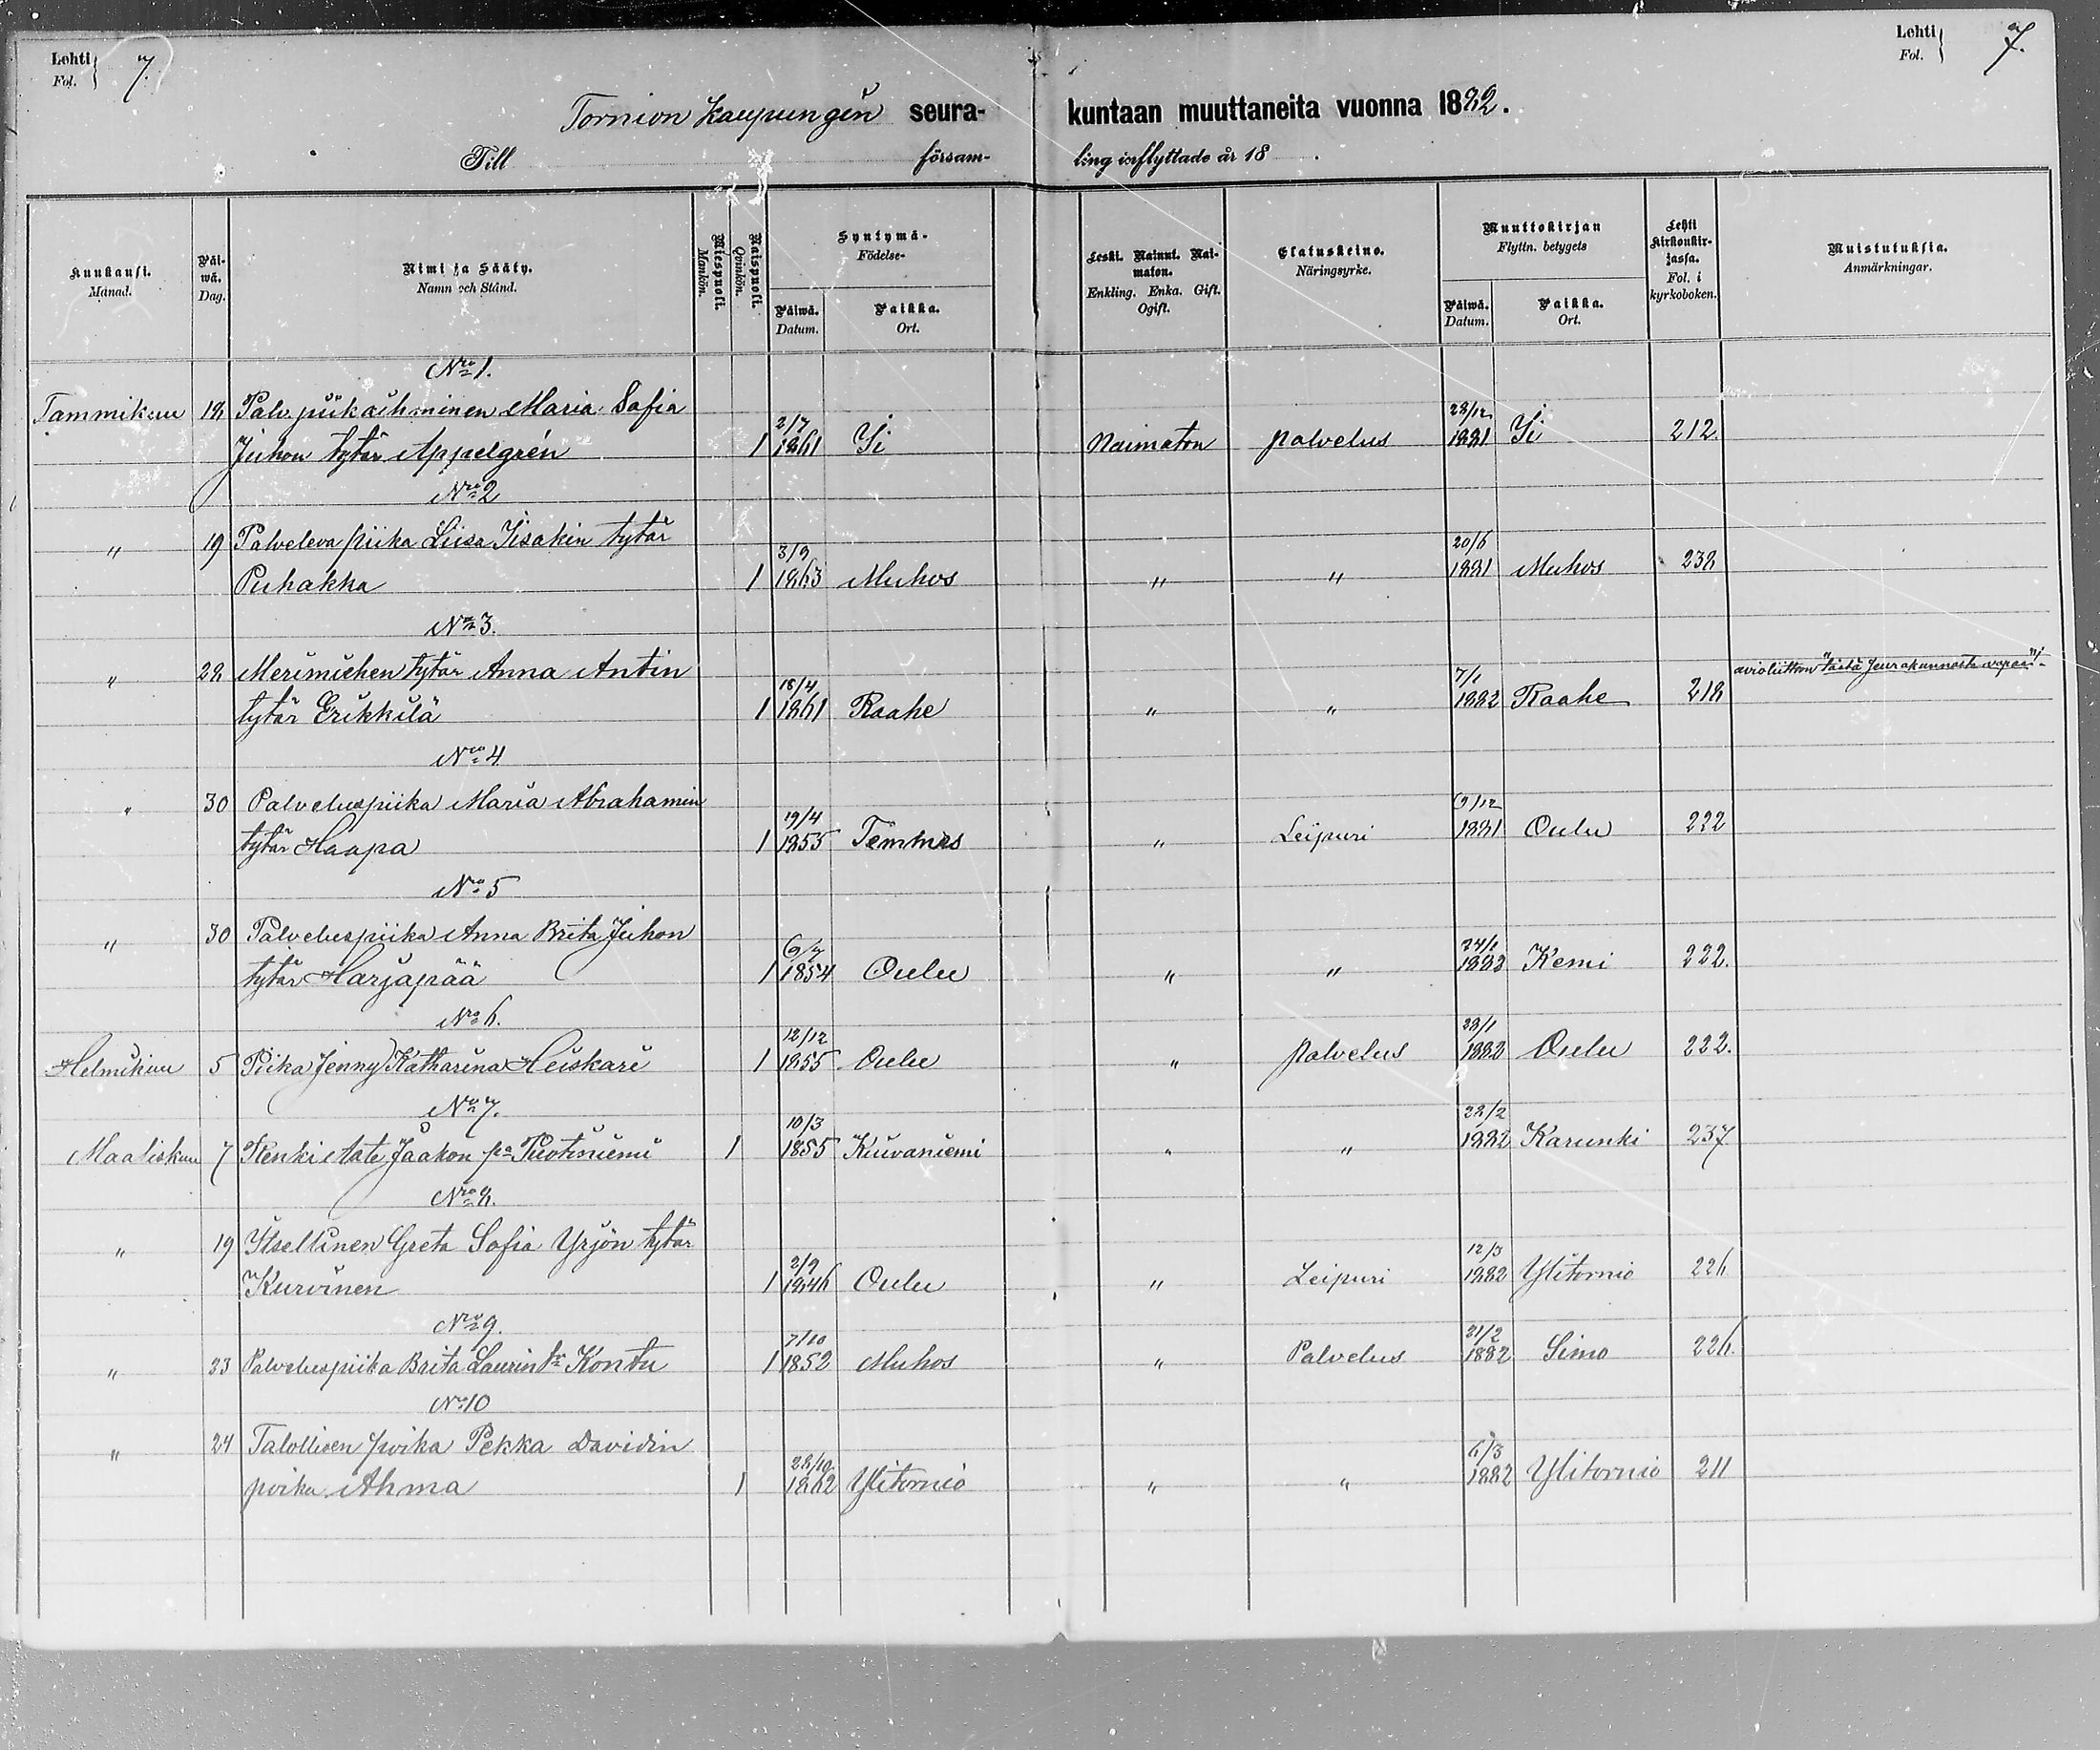 Lehti Fol. 7.
Lehti Fol. 7.
Tornion Kaupungin seura- kuntaan muuttaneita vuonna 1882.
Till församling inflyttade år 18 .
Kuukausi. Månad.
Päiwä. Dag.
Nimi ja Sääty. Namn och Stånd.
Miespuoli. Mankön.
Naispuoli. Qvinkön.
Syntymä- Födelse-
Päiwä. Datum.
Paikka. Ort.
Leski. Nainut. Naimaton. Enkling. Enka. Gift. Ogift.
Elatuskeino. Näringsyrke.
Muuttokirjan Flyttn. betygets
Päiwä. Datum.
Paikka. Ort.
Lehti Kirkonkirjassa. Fol. i kyrkoboken.
Muistutuksia. Anmärkningar.
Nro 1.
Tammikuu 18 Palv. piikaihminen Maria Sofia
Juhon tytär Appelgrén 1 2/7 1861 Ii Naimaton palvelus 28/12 1881 Ii 212
Nro 2
" 19 Palveleva piika Liisa Iisakin tytär
Puhakka 1 3/9 1863 Muhos " " 20/6 1881 Muhos 238
Nro 3.
" 28 Merimiehen tytär Anna Antin avioliittoon "tästä seurakunnasta vapaa"
tytär Erikkilä 1 18/4 1861 Raahe " " 7/1 1882 Raahe 218
Nro 4
" 30 Palveluspiika Maria Abrahamin
tytär Haapa 1 19/4 1855 Temmes " Leipuri 9/12 1881 Oulu 222
Nro 5
" 30 Palveluspiika Anna Brita Juhon
tytär Harjapää 1 9/7 1854 Oulu " " 24/1 1882 Kemi 222.
Nro 6.
Helmikuu 5 Piika Jenny Katharina Heiskari 1 12/12 1855 Oulu " palvelus 28/1 1882 Oulu 222.
Nro 7.
Maaliskuu 7 Renki Aate Jaakon pa Tuotiniemi 1 10/3 1855 Kuivaniemi " " 28/2 1882 Karunki 237
Nro 8.
" 19 Itsellinen Greta Sofia Yrjön tytär
Kurvinen 1 2/9 1846 Oulu " Leipuri 12/3 1882 Ylitornio 226
Nro 9.
" 23 Palveluspiika Brita Laurin tr Kontu 1 7/10 1852 Muhos " Palvelus 21/2 1882 Simo 226
Nro 10
" 24 Talollisen poika Pekka Davidin
poika Ahma 1 28/10 1862 Ylitornio " " 6/3 1882 Ylitornio 211